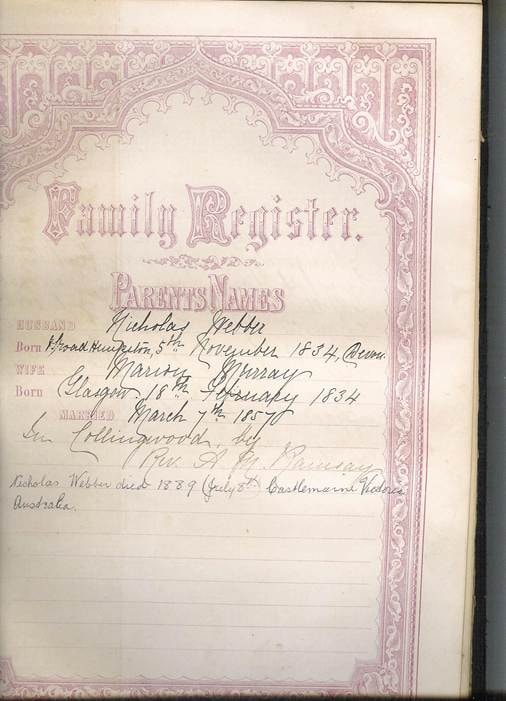 Family Register.
PARENTS NAMES
HUSBAND Nicholas Webber
Born Broadhempston, 5th November 1834, Devon
WIFE Marion Murray
Born Glasgow. 18th February 1834
MARRIED March 7th 1857
In Collingwood, by
Rev. A M. Ramsay
Nicholas Webber died 1889 (July 8th) Castlemaine Victoria
Australia.